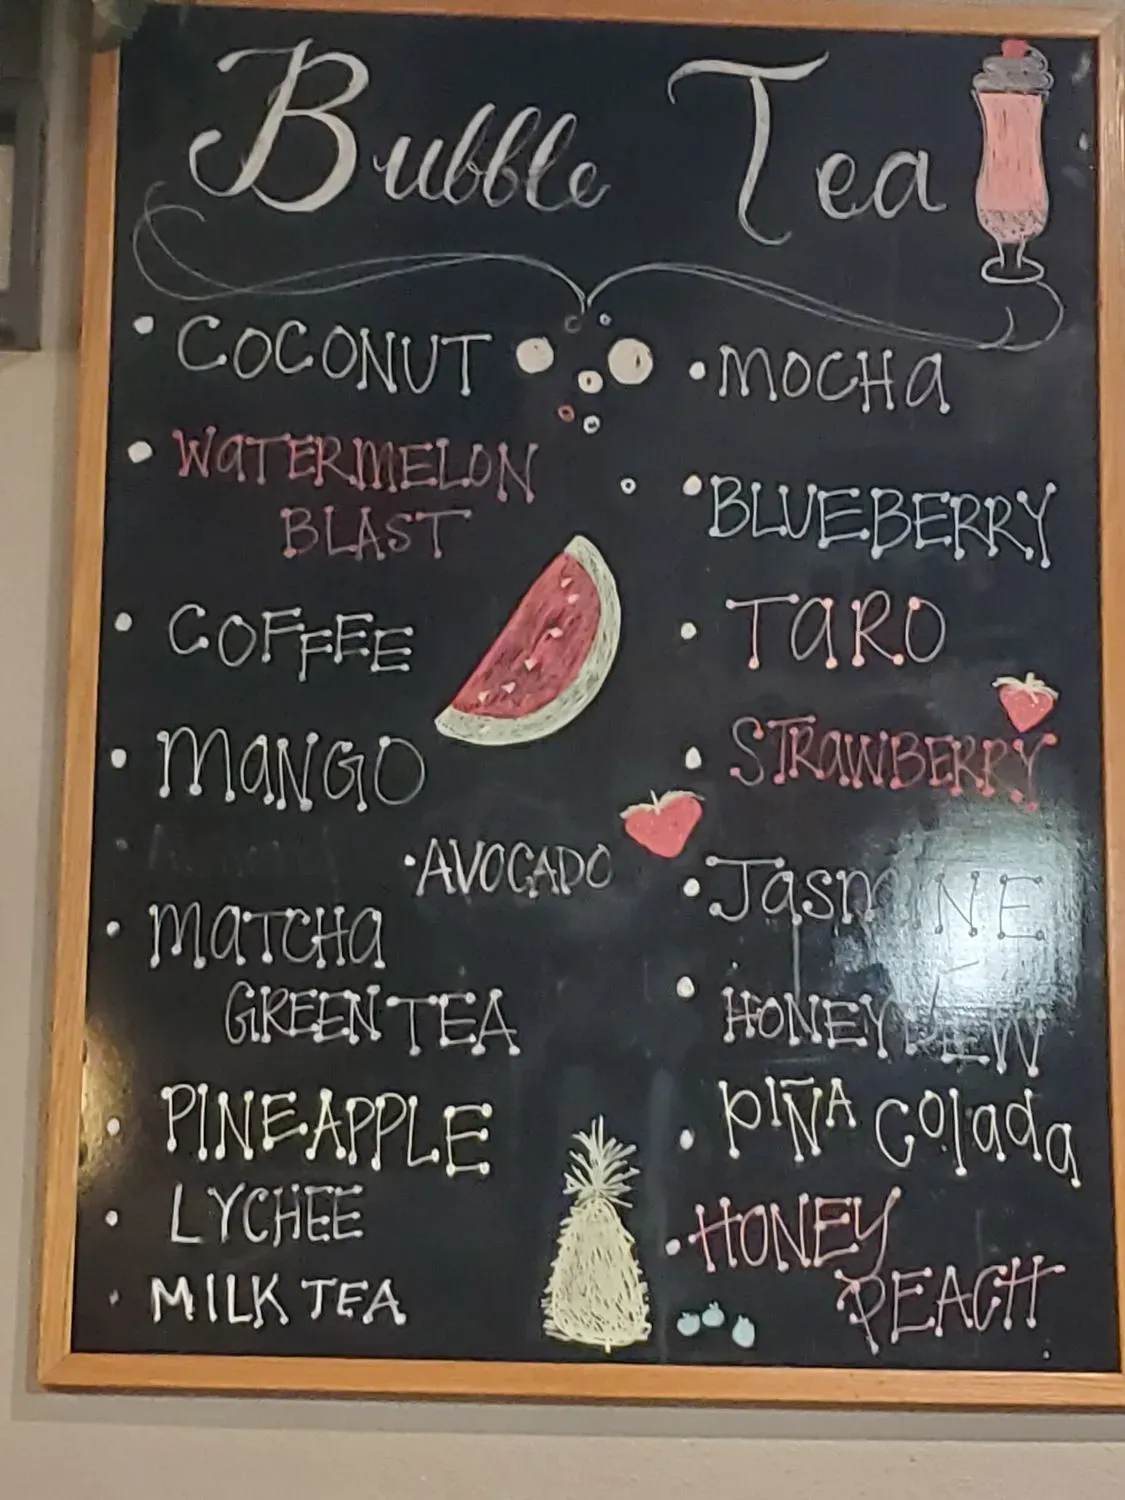 Bubble Tea
• COCONUT
• WATERMELON
BLAST
• COFFEE
• MANGO
• AVOCADO
• MATCHA
GREEN TEA
• PINEAPPLE
• LYCHEE
• MILK TEA
• MOCHA
• BLUEBERRY
• TARO
• STRAWBERRY
• JASMINE
• HONEYDEW
• PIÑA Colada
• HONEY
PEACH